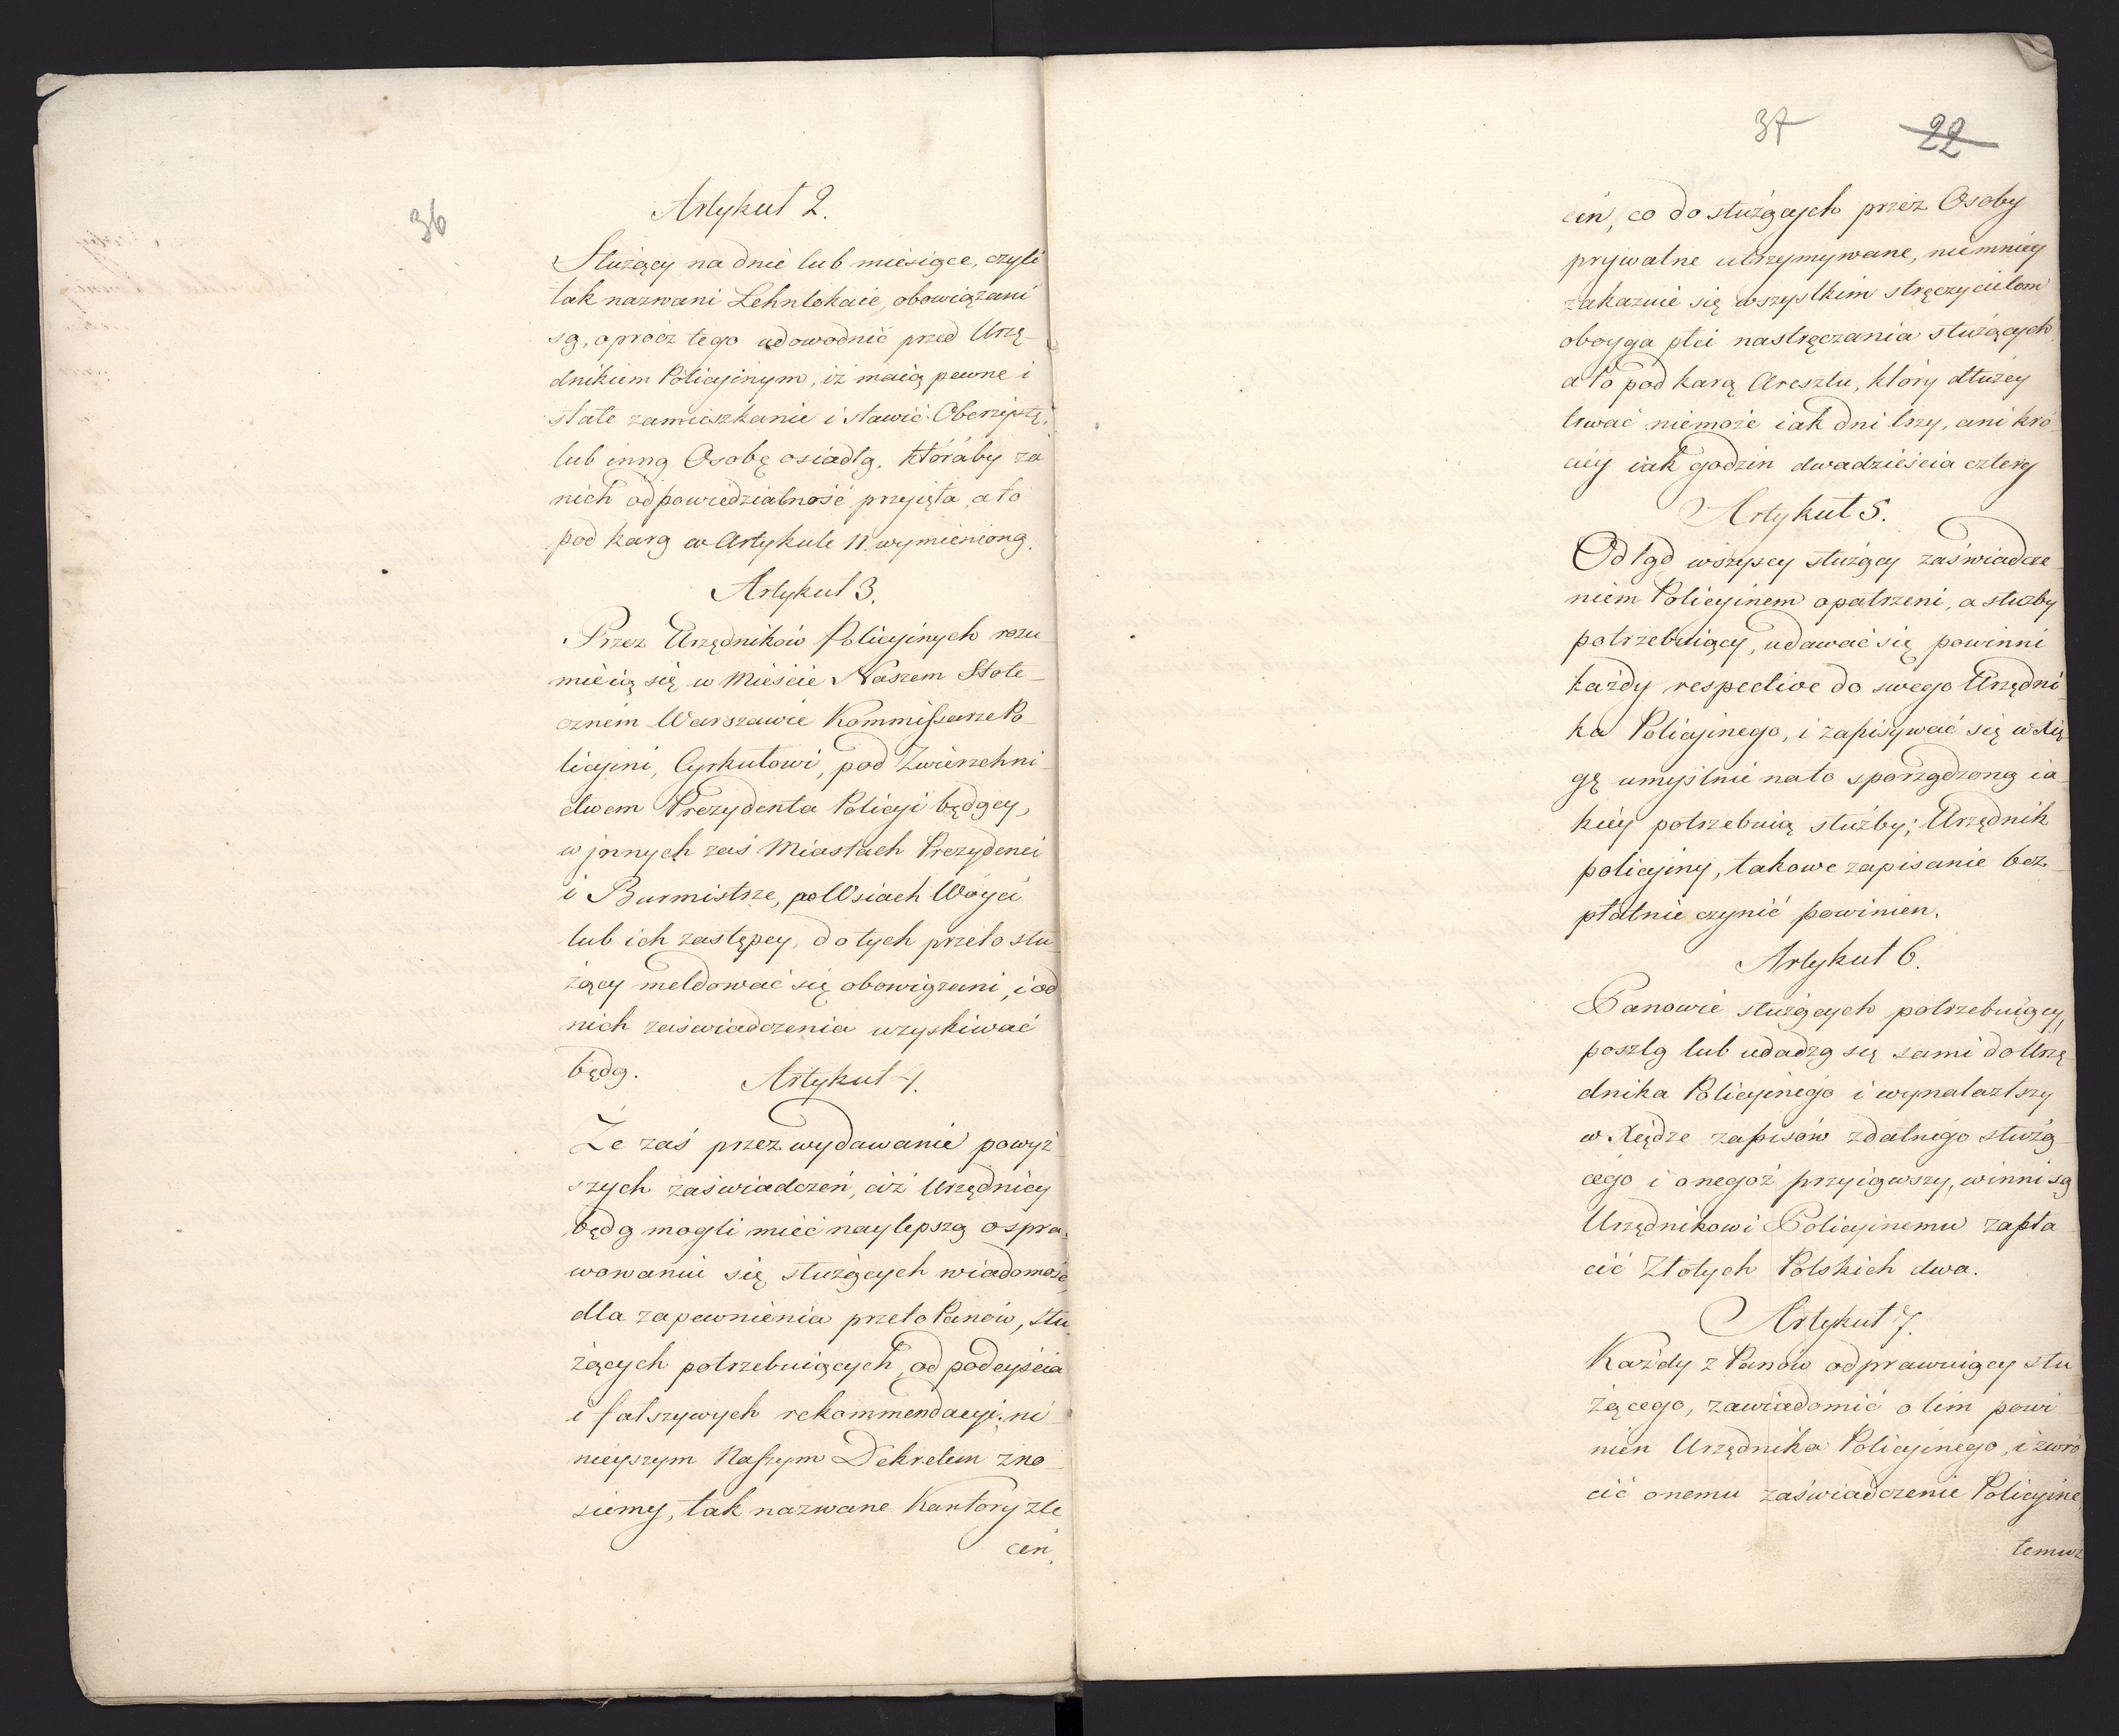 36
Artykuł 2.
Służący na dnie lub miesiące, czyli
tak nazwani Lehnlokaie, obowiązani
są, oprócz tego udowodnić przed Urzę-
dnikiem Policyinym, iż maią pewne i
stałe zamieszkanie i stawić Oberżystę,
lub inną Osobę osiadłą, któraby za
nich odpowiedzialność przyięła, a to
pod karą w Artykule 11. wymienioną.
Artykuł 3.
Przez Urzędników Policyinych rozu-
mieią się w Mieście Naszem Stołe-
cznem Warszawie Kommissarze Po-
licyini, Cyrkułowi, pod Zwierzchni-
ctwem Prezydenta Policyi będący,
w jnnych zaś Miastach Prezydenci
i Burmistrze, po Wsiach Wóyci
lub ich zastępcy, do tych przeto słu-
żący meldować się obowiązani, i od
nich zaświadczenia uzyskiwać
będą.
Artykuł 4.
Że zaś przez wydawanie powyż
szych zaświadczeń, ciż Urzędnicy
będą mogli mieć naylepszą o spra-
wowaniu się służących wiadomość,
dla zapewnienia przeto Panów, słu-
żących potrzebuiących, od podeyścia
i fałszywych rekommendacyi; ni-
nieyszym Naszym Dekretem zno-
siemy, tak nazwane Kantory zle
ceń,
37
22
ceń, co do służących przez Osoby
prywatne utrzymywane, niemniey
zakazuie się wszystkim stręczycielom
oboyga płci nastręczania służących,
a to pod karą Aresztu, który dłużey
trwać niemoże iak dni trzy, ani kró-
cey iak godzin dwadzieścia cztery
Artykuł 5.
Odtąd wszyscy służący zaświadcze-
niem Policyinem opatrzeni, a służby
potrzebuiący, udawać się powinni
każdy respective do swego Urzędni
ka Policyinego, i zapisywać się w Xię-
gę umyślnie na to sporządzoną ia-
kiey potrzebuią służby; Urzędnik
policyiny, takowe zapisanie bez-
płatnie czynić powinien.
Artykuł 6.
Panowie służących potrzebuiący,
poszlą lub udadzą się sami do Urzę-
dnika Policyinego i wynalazłszy
w Xiędze zapisów zdatnego służą-
cego i onegoż przyiąwszy, winni są
Urzędnikowi Policyinemu zapła
cić Złotych Polskich dwa.
Artykuł 7.
Każdy z Panów odprawuiący słu
żącego, zawiadomić o tem powi
nien Urzędnika Policyinego, i zwró
cić onemu zaświadczenie Policyine,
temuż